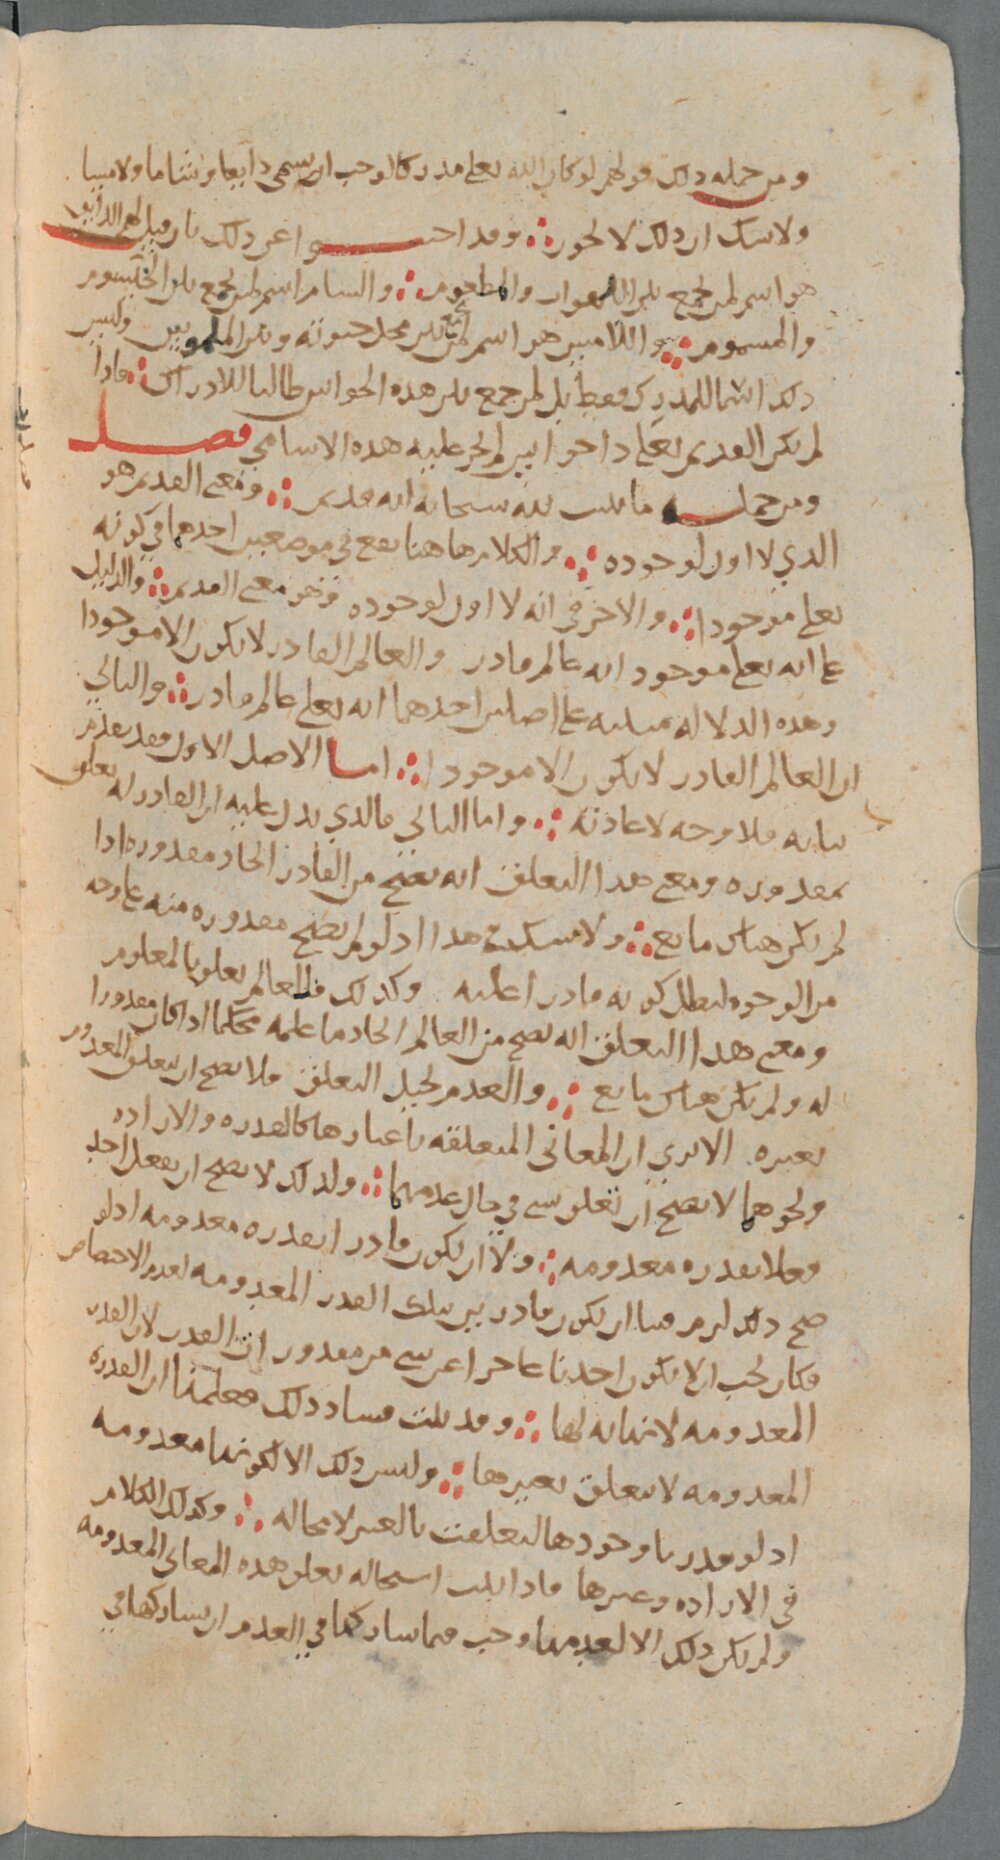 ومن جملة ذلك قولهم لو كان الله تعلى مدركا لوجب ان يسمى ذايقا وشاما ولامسا
ولا شك ان ذلك لا يجوز ؞ وقد اجيبوا عن ذلك بان قيل لهم الذايق
هو اسم لمن يجمع بين اللهوات والمطعوم ؞ والشام اسم لمن يجمع بين الخيشوم
والمشموم ؞ واللامس هو اسم لمن يجمع بين محل حيوته وبين الملموس وليس
ذلك اسما للمدرك فقط بل لمن جمع بين هذه الحواس طالبا للادراك ؞ فاذا
لم يكن القديم تعلى ذا حواس لم تجر عليه هذه الاسامي فصل
ومن جملة ما يثبت لله سبحانه انه قديم ؞ ومعنى القديم هو
الذي لا اول لوجوده ؞ والكلام هاهنا يقع في موضعين احدهما في كونه
تعلى موجودا ؞ والاخر في انه لا اول لوجوده وهو معنى القديم ؞ والدليل
على انه تعلى موجود انه عالم قادر والعالم القادر لا يكون الا موجودا
وهذه الدلالة مبنية على اصلين احدهما انه تعلى عالم قادر ؞ والثاني
ان العالم القادر لا يكون الا موجودا ؞ اما الاصل الاول فقد تقدم
بيانه فلا وجه لاعادته ؞ واما الثاني فالذي يدل عليه ان القادر له تعلق
بمقدوره ومعنى هذا التعلق انه يصح من القادر ايجاد مقدوره اذا
لم يكن هناك مانع ؞ ولا شك في هذا اذ لو لم يصح مقدوره منه على وجه
من الوجوه لبطل كونه قادرا عليه وكذلك فللعالم تعلق بالمعلوم
ومعنى هذا التعلق انه يصح من العالم ايجاد ما علمه محكما اذا كان مقدورا
له ولم يكن هناك مانع ؞ والعدم يحيل التعلق فلا يصح ان يتعلق المعدوم
بغيره الا ترى ان المعاني المتعلقة باغيارها كالقدرة والارادة
ونحوهما لا يصح ان تعلق بشي في حال عدمها ؞ ولذلك لا يصح ان يفعل احد
فعلا بقدرة معدومة ؞ ولا ان يكون قادرا بقدرة معدومة اذ لو
صح ذلك لزم فينا ان نكون قادرين بتلك القدر المعدومة لعدم الاختصاص
فكان يجب الا يكون احدنا عاجزا عن شي من مقدورات القدر لان القدر
المعدومة لا نهاية لها ؞ وقد ثبت فساد ذلك فعلمنا ان القدرة
المعدومة لا تتعلق بغيرها ؞ وليس ذلك الا لكونها معدومة
اذ لو قدرنا وجودها لتعلقت بالغير لا محالة ؞ وكذلك الكلام
في الارادة وغيرها فاذا ثبت استحالة تعلق هذه المعاني المعدومة
ولم يكن ذلك الا لعدمها وجب فيما شاركها في العدم ان يشاركها في